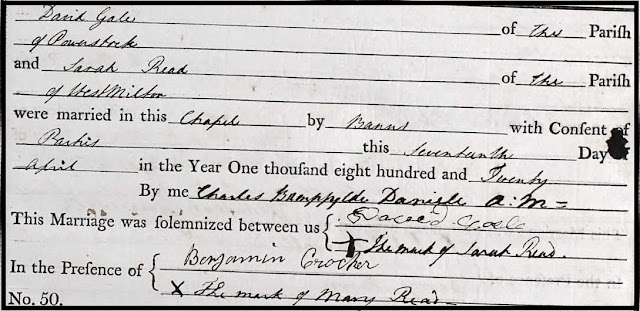 David Gale of This Parish
of Powerstock
and Sarah Read of this Parish
of West Milton
were married in this Chapel by Banns with Consent of
Parties this Seventeenth Day of
April in the Year One thousand eight hundred and Twenty
By me Charles Bampfylde Daniele A:M=
This Marriage was solemnized between us { Gale
X The mark of Sarah Read.
In the Presence of { Benjamin Crocker
X The mark of Mary Read
No. 50.